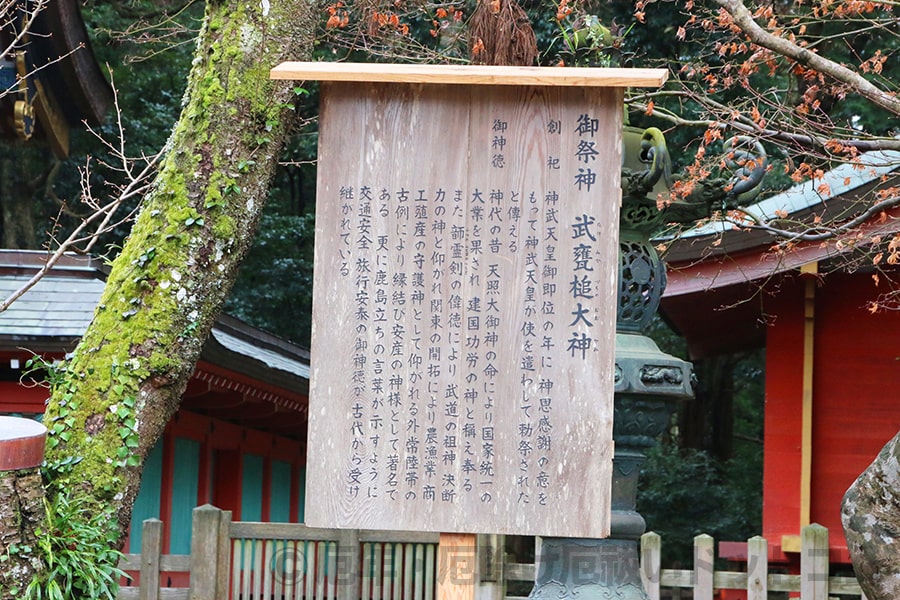 御祭神　武甕槌大神
創祀　神武天皇御即位の年に　神思感謝の意を
もって神武天皇が使を遣わして勅祭された
と傳える
御神徳　神代の昔　天照大御神の命により国家統一の
大業を果され　建国功労の神と称え奉る
また　韴霊剣の偉徳により　武道の祖神　決断
力の神と仰がれ関東の開拓により　農漁業　商
工殖産の守護神として仰がれる外　常陸帯の
古例により　縁結び安産の神様として著名で
ある　更に鹿島立ちの言葉が示すように
交通安全　旅行安泰の御神徳が　古代から受け
継がれている
©厄年・厄除け厄祓いドットコム